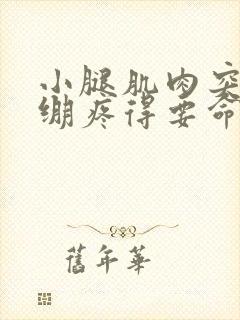 小腿肌肉突
绷疼得要命
舊年華